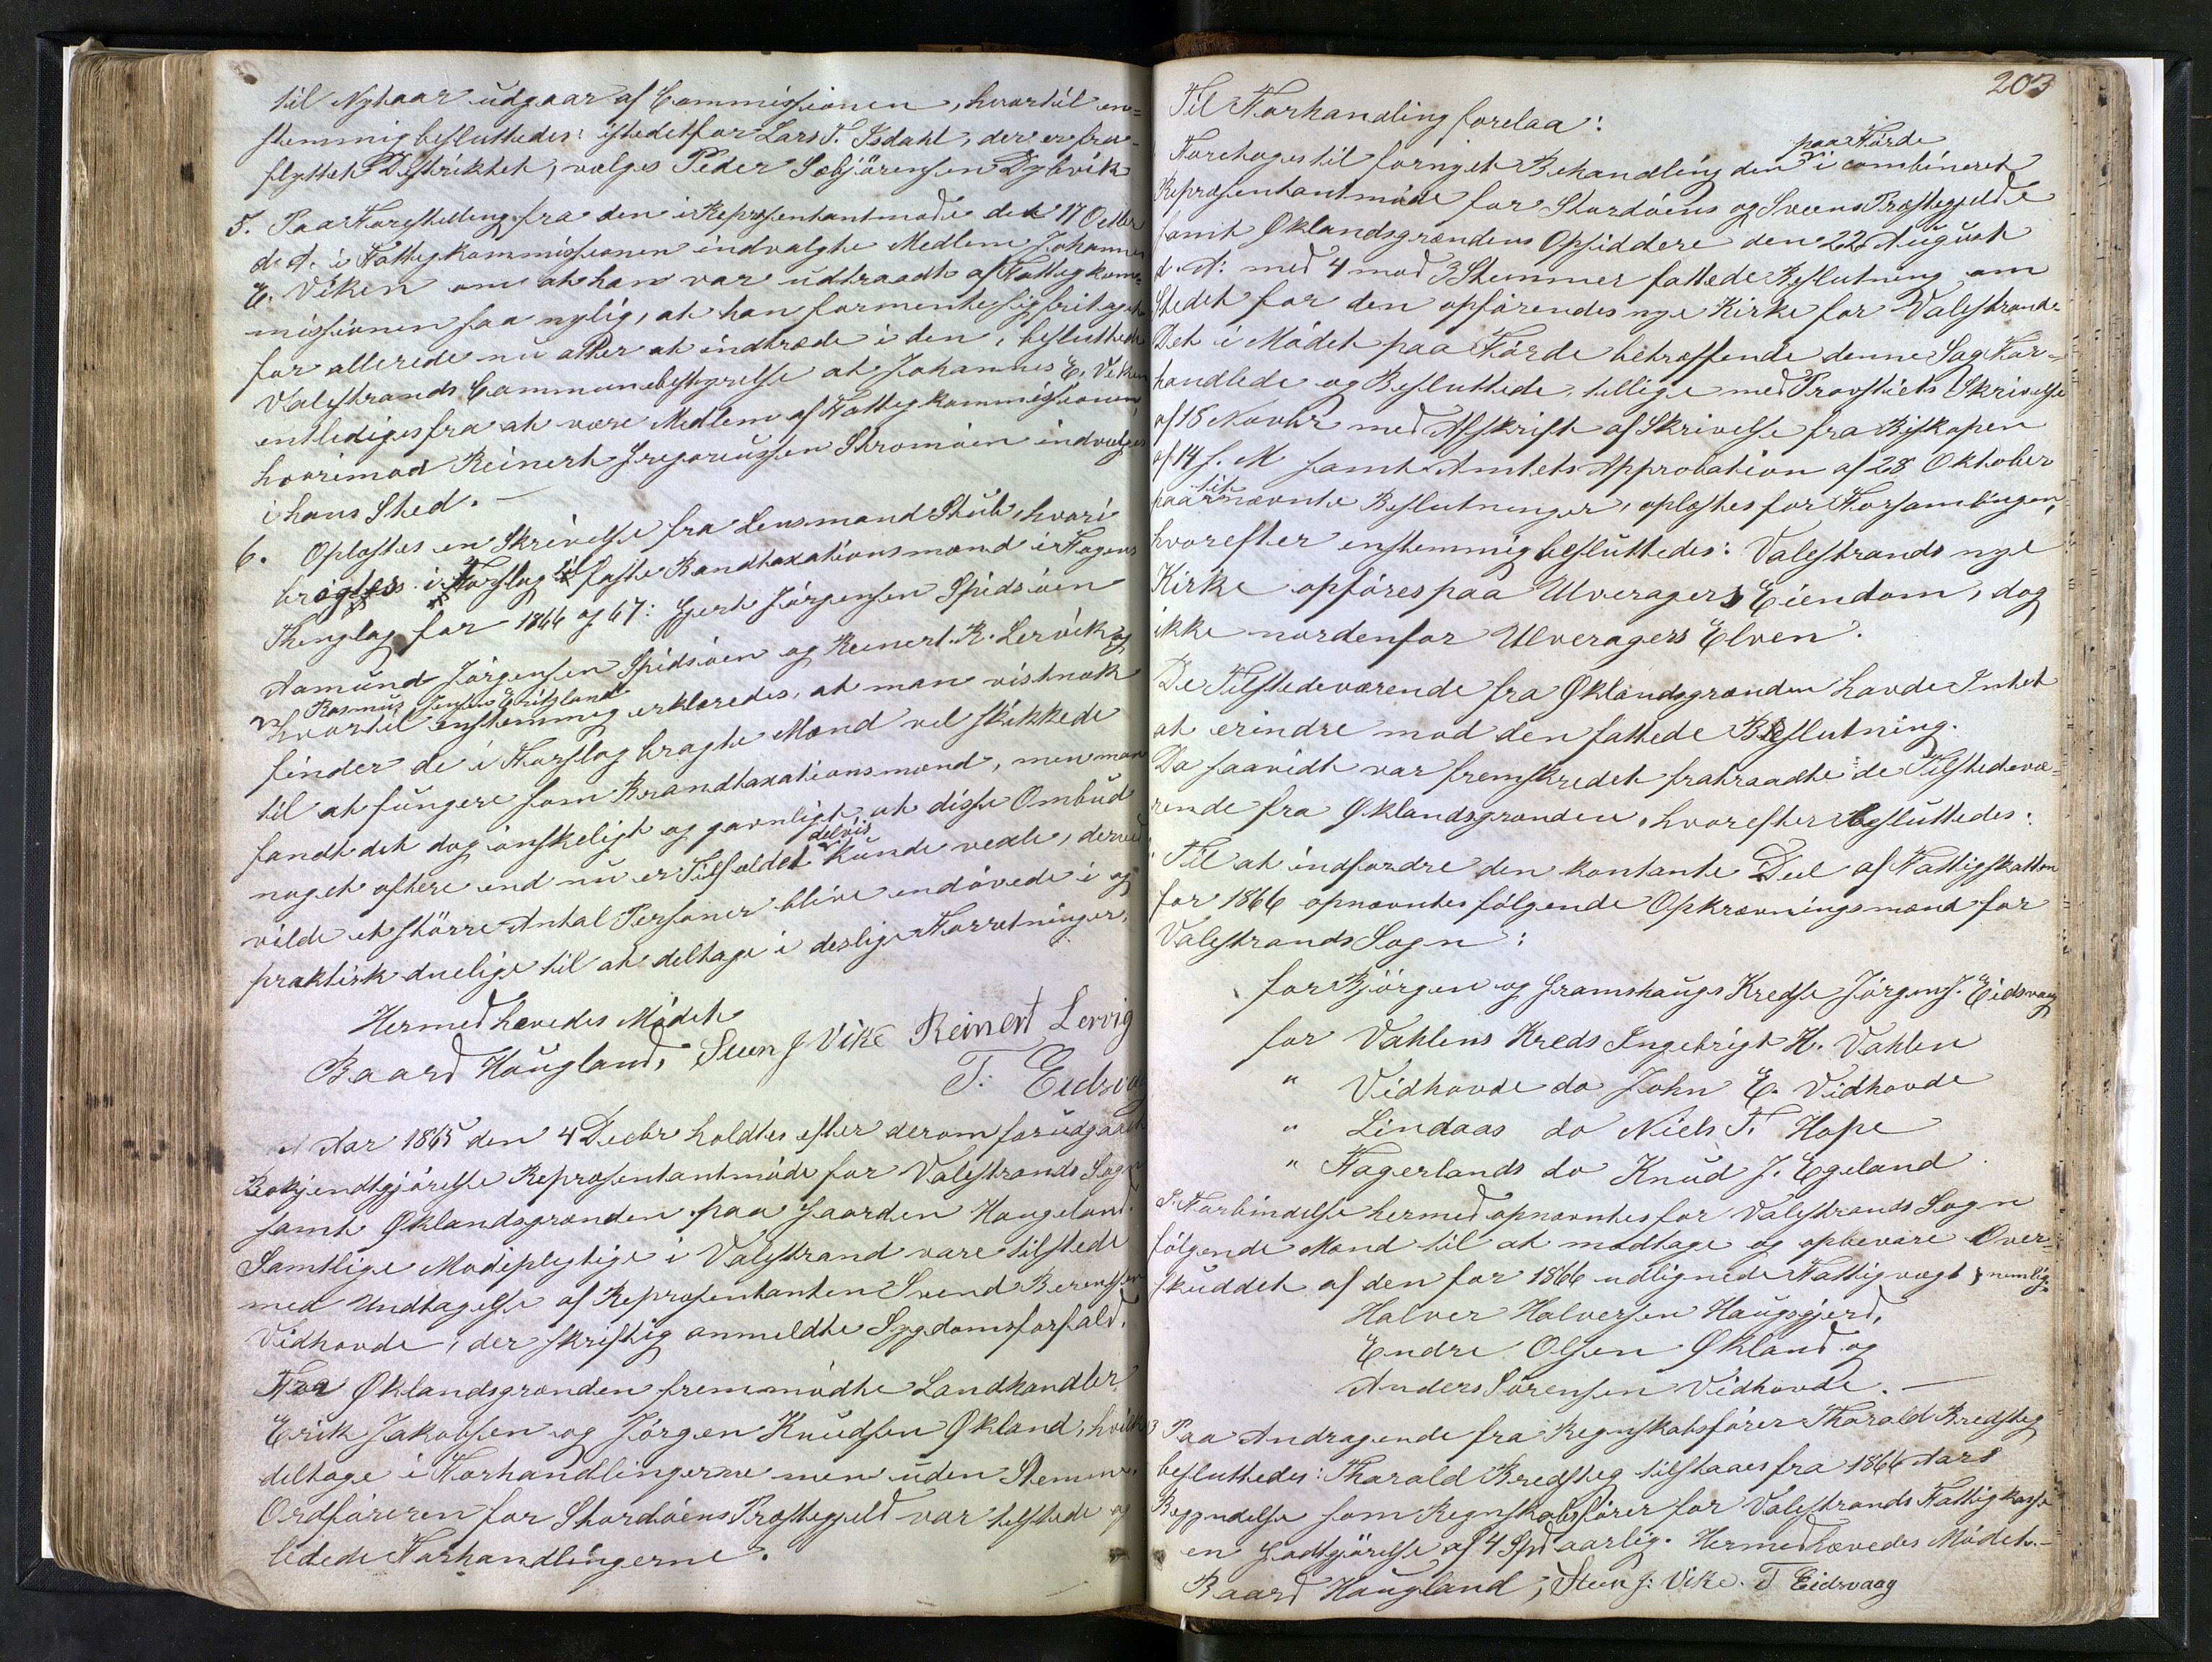 til Nytaar udgaar af Commissionen, hvortil een=
stemmig besluttedes: istedetfor Lars T. Isdahl, der er fra=
flyttet Distriktet, vælges Peder Sæbjörensen Dybvik
5. Paa Forestilling fra den i Repræsentantmøde den 17 Octbr
d. A. i Fattigkommissionen indvalgte Medlem Johannes
E. Viken om at han var udtraadt af Fattigkom=
missionen saa nylig, at han formente sig fritaget
for allerede nu atter at indtræde i den, besluttede
Valestrands Communebestyrelse at Johannes E. Viken
entlediges fra at være Medlem af Fattigkommissionen,
hvorimod Reinert Gregoriussen Stromöen indvælges
i hans Sted. —
6. Oplæstes en Skrivelse fra Lensmand Stub, hvori
bragtes i Forslag til faste Brandtaxationsmænd i Fagens
Thinglag for 1866 og 67: Gjert Jörgensen Spidsöen
Aamund Jörgensen Spidsöen og Reinert R. Lervik og
Rasmus Jensen Eritzland
hvortil enstemmig erklæredes, at man vistnok
finder de i Forslag bragte Mænd vel skikkede
til at fungere som Brandtaxationsmænd, men man
fandt det dog önskeligt og gavnligt, at disse Ombud
delvis
noget oftere end nu er Tilfældet kunde vexle, derved
vilde et större Antal Personer blive indövede i og
praktisk duelige til at deltage i deslige Forretninger.
Hermed hævedes Mödet
Baard Haugland, Steen J Vike Reinert Lervig
T. Eidsvaag
Aar 1865 den 4 Decbr holdtes efter derom forudgaaet
Bekjendtgjörelse Repræsentantmöde for Valestrands Sogn
samt Øklandsgrænden paa Gaarden Haugeland.
Samtlige Mødepligtige i Valestrand vare tilstede
med Undtagelse af Repræsentanten Svend Berentsen
Vidhovde, der skriftlig anmeldte Sygdomsforfald.
Fra Øklandsgrænden fremmödte Landhandler
Erik Jakobsen og Jörgen Knudsen Økland, hvilke
deltage i Forhandlingerne men uden Stemme.
Ordföreren for Stordöens Præstegjeld var tilstede og
ledede Forhandlingerne.
203
Til Forhandling forelaa:
paa Förde
Foretoges til fornyet Behandling den i combineret
Repræsentantmöde for Stordöens og Sveens Præstegjelde
samt Øklandsgrændens Opsiddere den 22 August
d. A. med 4 mod 3 Stemmer fattede Beslutning om
Stedet for den opförendes nye Kirke for Valestrand.
Det i Mödet paa Förde betræffende denne Sag For=
handlede og Besluttede, tillige med Provstiets Skrivelse
af 18 Novbr med Afskrift af Skrivelse fra Biskopen
af 14 s. M samt Amtets Approbation af 28 Oktober
paa sitnævnte Beslutninger, oplæstes for Forsamlingen,
hvorefter enstemmig besluttedes: Valestrands nye
Kirke opföres paa Ulveragers Eiendom, dog
ikke nordenfor Ulveragers Elven.
De Tilstedeværende fra Øklandsgrænden havde Intet
at erindre mod den fattede Beslutning.
Da saavidt var fremskredet fratraadte de Tilstedevæ=
rende fra Øklandsgrænden, hvorefter besluttedes:
Til at indfordre den kontante Deel af Fattigskatten
for 1866 opnævntes fölgende Opkrævningsmænd for
Valestrands Sogn:
for Bjórgen og Gramshaugs Kredse Jörgen J. Eidsvaag
for Vahlens Kreds Ingebrigt H. Vahlen
" Vidhovde do John E. Vidhovde
" Lindaas do Niels T. Hope
" Fagerlands do Knud J. Egeland
I Forbindelse hermed opnævntes for Valestrands Sogn
fölgende Mænd til at modtage og opbevare Over=
skuddet af den for 1866 udlignede Fattigvægt; nemlig:
Halver Halversen Haugsgjerd,
Endre Olsen Økland og
Anders Sörensen Vidhovde. —
3 Paa Andragende fra Regnskabsförer Tharald Bredsteg
besluttedes: Tharald Bredsteg tilstaaes fra 1866 Aars
Begyndelse som Regnskabsförer for Valestrands Fattigkasse
en Godtgjörelse af 4 Spd aarlig. Hermed hævedes Mödet. —
Baard Haugland, Steen J. Vike. T Eidsvaag